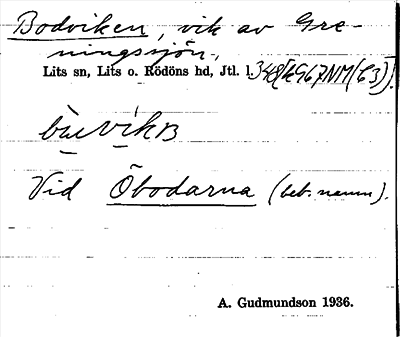 Bodviken, vik av Gre-
ningssjön,
Lits sn, Lits o. Rödöns hd, Jtl. l.
Vid Öbodarna (beb.namn).
A. Gudmundson 1936.